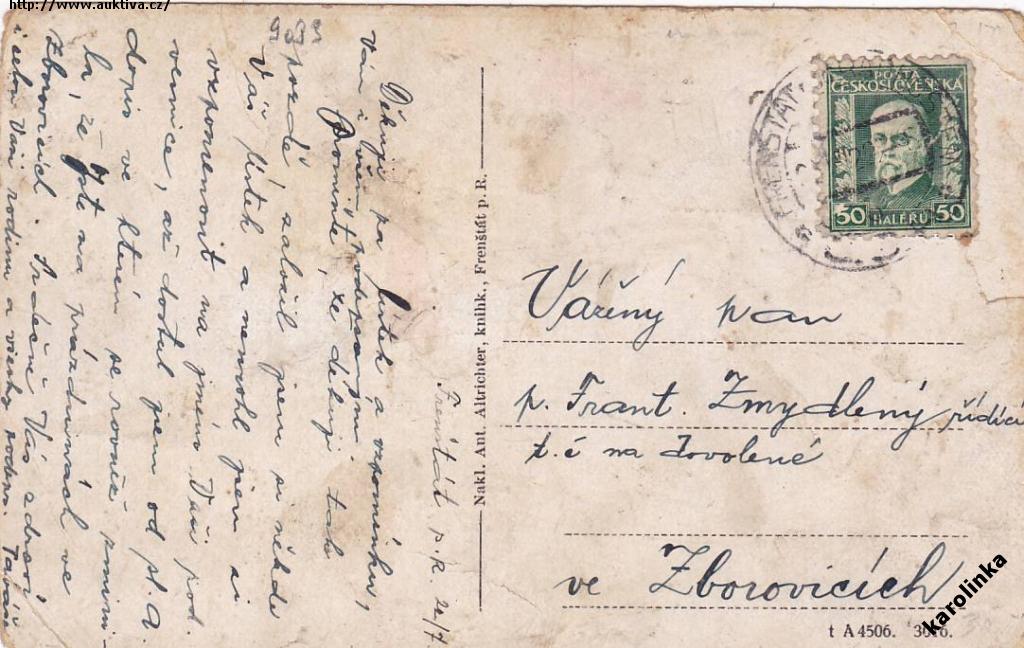 http://www.auktiva.cz/
933
Frenštát p. R. 20/7
Děkuji za lístek a vzpomínku,
Vám i všem podepsaným
Promiňte, že děkuji tak
pozdě, založil jsem si někde
Váš lístek a nemohl jsem si
vzpomenout na jméno Vaší pod.
vesnice, až dostal jsem od sl. A.
dopis ve kterém se rovněž zmini-
la, že jste na prázdninách ve
Zborovicích. Srdečně Vás zdraví
i celou Vaši rodinu a všechny
Nakl. Ant. Altrichter, knihk., Frenštát p. R.
POŠTA
ČESKOSLOVENSKÁ
50 HALÉŘŮ 50
FRENŠTÁT
Vážený pan
p. Frant. Zmydlený řídící
t. č. na dovolené
ve Zborovicích
t A 4506. 3616.
karolinka